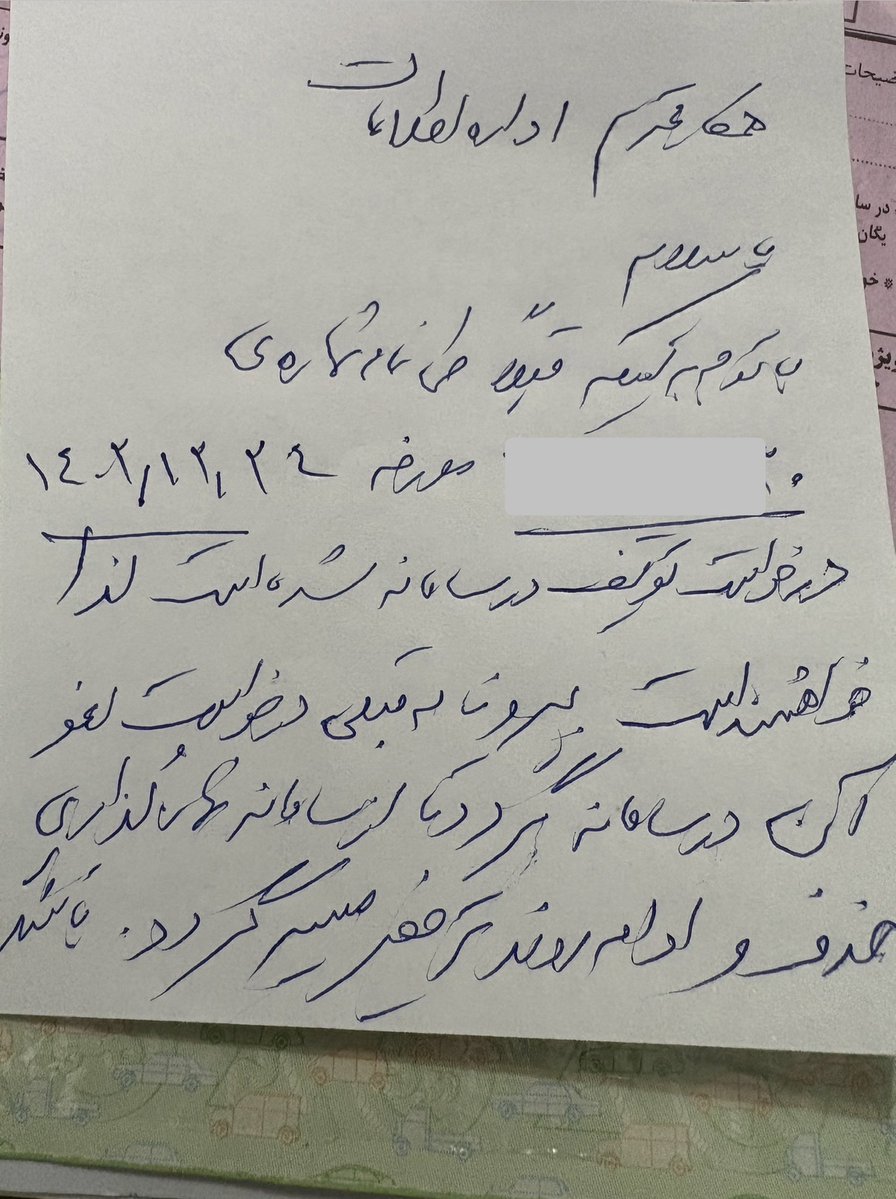 همکار محترم اداره اطلاعات
با سلام
با توجه به اینکه قبلاً طی نامه شماره ی
مورخه ۱۴۰۲/۱۲/۲۴
درخواست توقف در سامانه شده است لذا
خواهشمند است پیرو نامه قبلی درخواست لغو
آن در سامانه گردد تا از سامانه شماره گذاری
حذف و ادامه روند ترخیص میسر گردد. با تشکر
توضیحات
در سا
یگان
* خو
ویژ